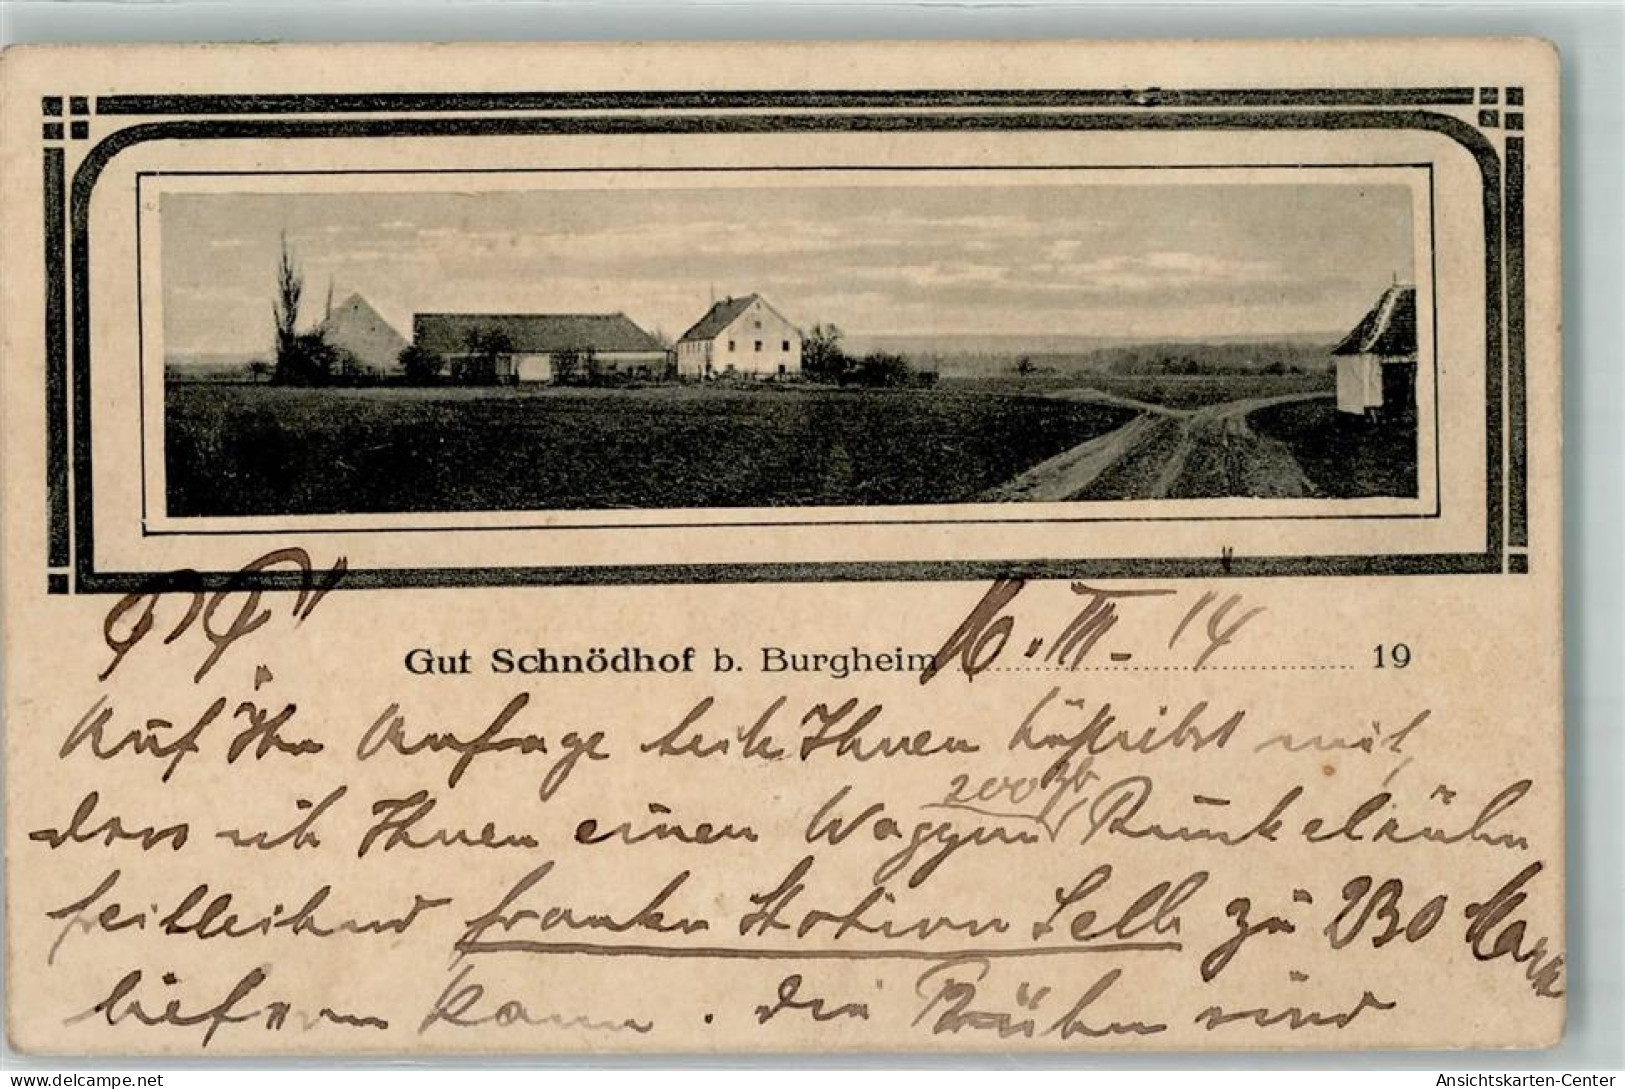 P. P.
Gut Schnödhof b. Burgheim 16. III. 14 19
Auf Ihre Anfrage teile Ihnen höflichst mit,
dass ich Ihnen einen Waggon 200 Runkelrüben
freibleibend franko Station Selb zu 230 Mark
liefern kann. Die Rüben sind
delcampe.net
Ansichtskarten-Center